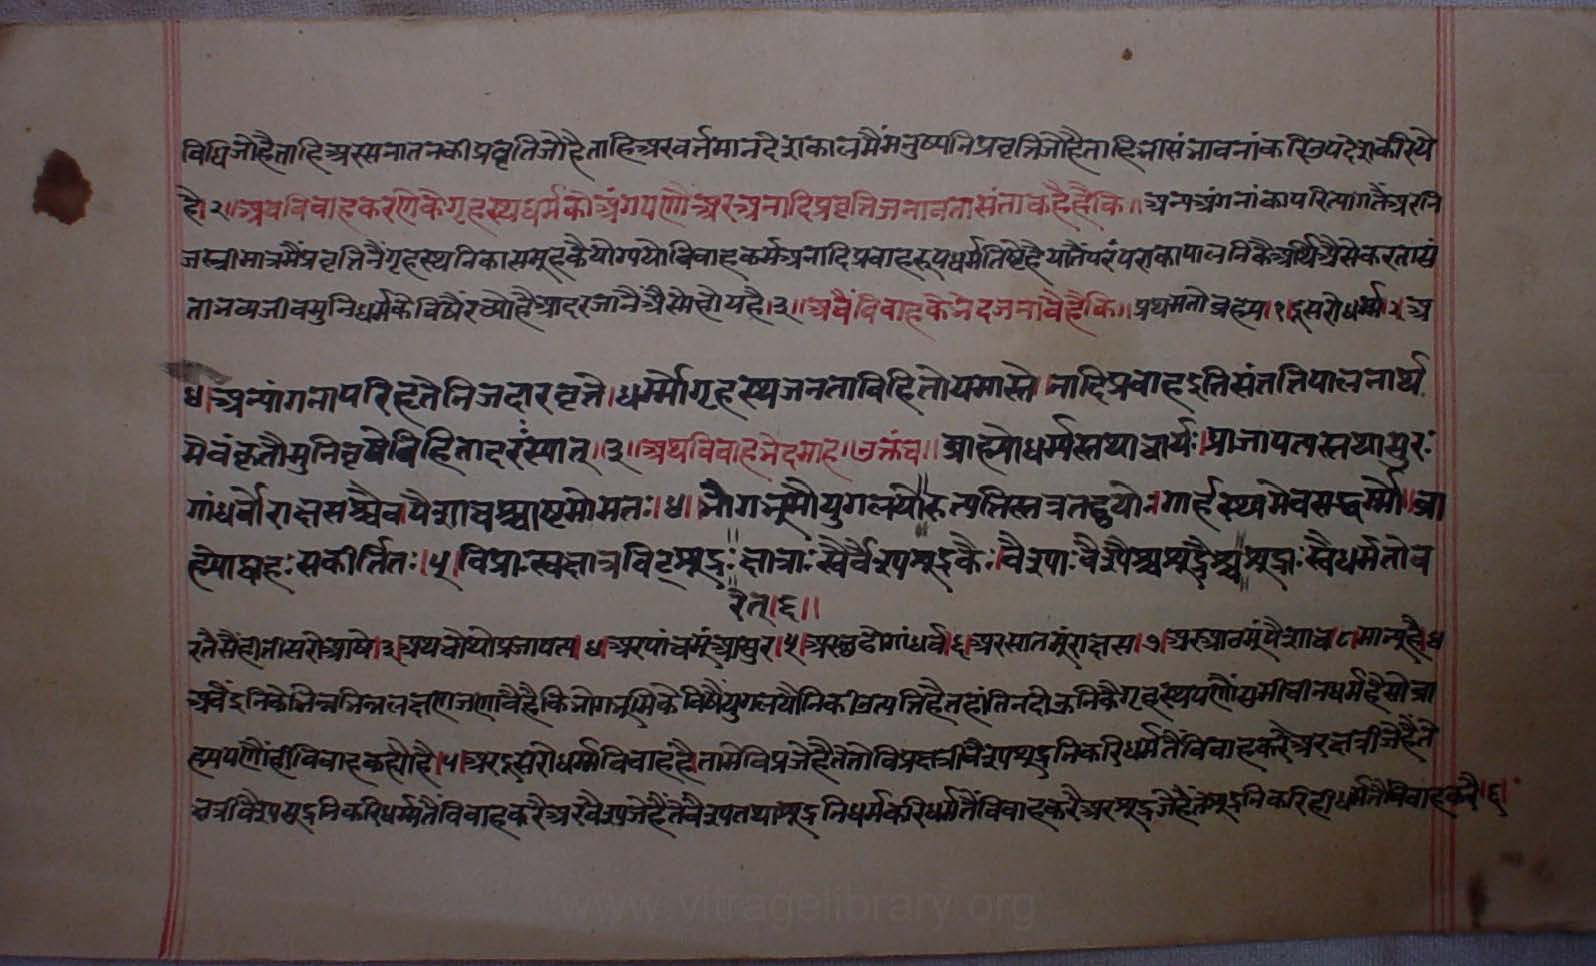 विधि जो है ताहि अरु सनातनकी प्रवृति जो है ताहि अर वर्तमान देशकालमैं मनुष्यनि प्रवृति जो है ताहि भी संभावनां करि उपदेश करिये
है।२॥अब विवाह करणेकै गृहस्थधर्मको अंगपणौं अर अनादि प्रवृति जनावता संता कहै हैकि॥अन्य अंगनांका परित्यागतैं अर नि
जस्त्री मात्रमैं प्रवृतितैं गृहस्थनिका समूहकै योग्य यो विवाहकर्म अनादि प्रवाहरूप धर्म तिष्टै है यातैं परंपराका पालनिकै अर्थि अैसे करता सं
ता भव्यजीव मुनिधर्मके विषैं रच्यो है आदर जानैं अैसे होय है।३॥अबैं विवाहके भेद जनावै हैकि॥प्रथम तो ब्रह्म्य।१।दूसरो धर्म्म।२।अ
ध।अन्यांगनापरिहृतेर्निजदारवृत्ते।धर्म्मो गृहस्थजनताविहितोयमास्ते।नादिप्रवाहइतिसंततिपालनार्थ
मेवं कृतौ मुनिवृषे विहितादरः स्यात्॥३॥अथ विवाहभेदमाह॥उक्तंच॥ब्राह्म्यो धर्म्मस्तथा चार्यः।प्राजापत्यस्तथासुरः
गांधर्वो राक्षसश्चैव।पैशाचश्चाष्टमो मतः।४।भोगभूमौ युगलयोरुत्पत्तिस्तत्र तद्द्वयो गार्हस्थ्यमेव सद्धर्म्मो।ब्रा
ह्म्योद्वाहः सकीर्तितः।५।विप्राः स्वक्षात्रविट्शूद्रैः क्षात्राः स्वैर्वैश्यशूद्रकैः।वैश्याः वैश्यैश्च शूद्रैश्च शूद्राः स्वै धर्मतो च
रेत्।६॥
अबैं इनिके भिन्न भिन्न लक्षण जणावै हैकि भोगभूमिके विषैं युगलयौनिकी उत्पत्ति है तहां तिन दोऊनिकै गृहस्थपणौं समीचीन धर्म है सो ब्रा
ह्म्यपणौं ही विवाह कह्यौ है।५।अर दूसरो धर्म्म विवाह है तामें विप्र जे है ते तो विप्र क्षत्री वैश्य शूद्रनिकरि धर्मतैं विवाह करै अर क्षत्री जे हैं ते
क्षत्री वैश्य सूद्रनिकरि धर्मतै विवाह करै अर वैश्य जे हैं ते वैश्य तथा शूद्रनि धर्मकरि धर्मतैं विवाह करै अर शूद्र जे हैं ते शूद्रनिकरि ही धर्मतैं विवाह करै।६।
www.vitragelibrary.org